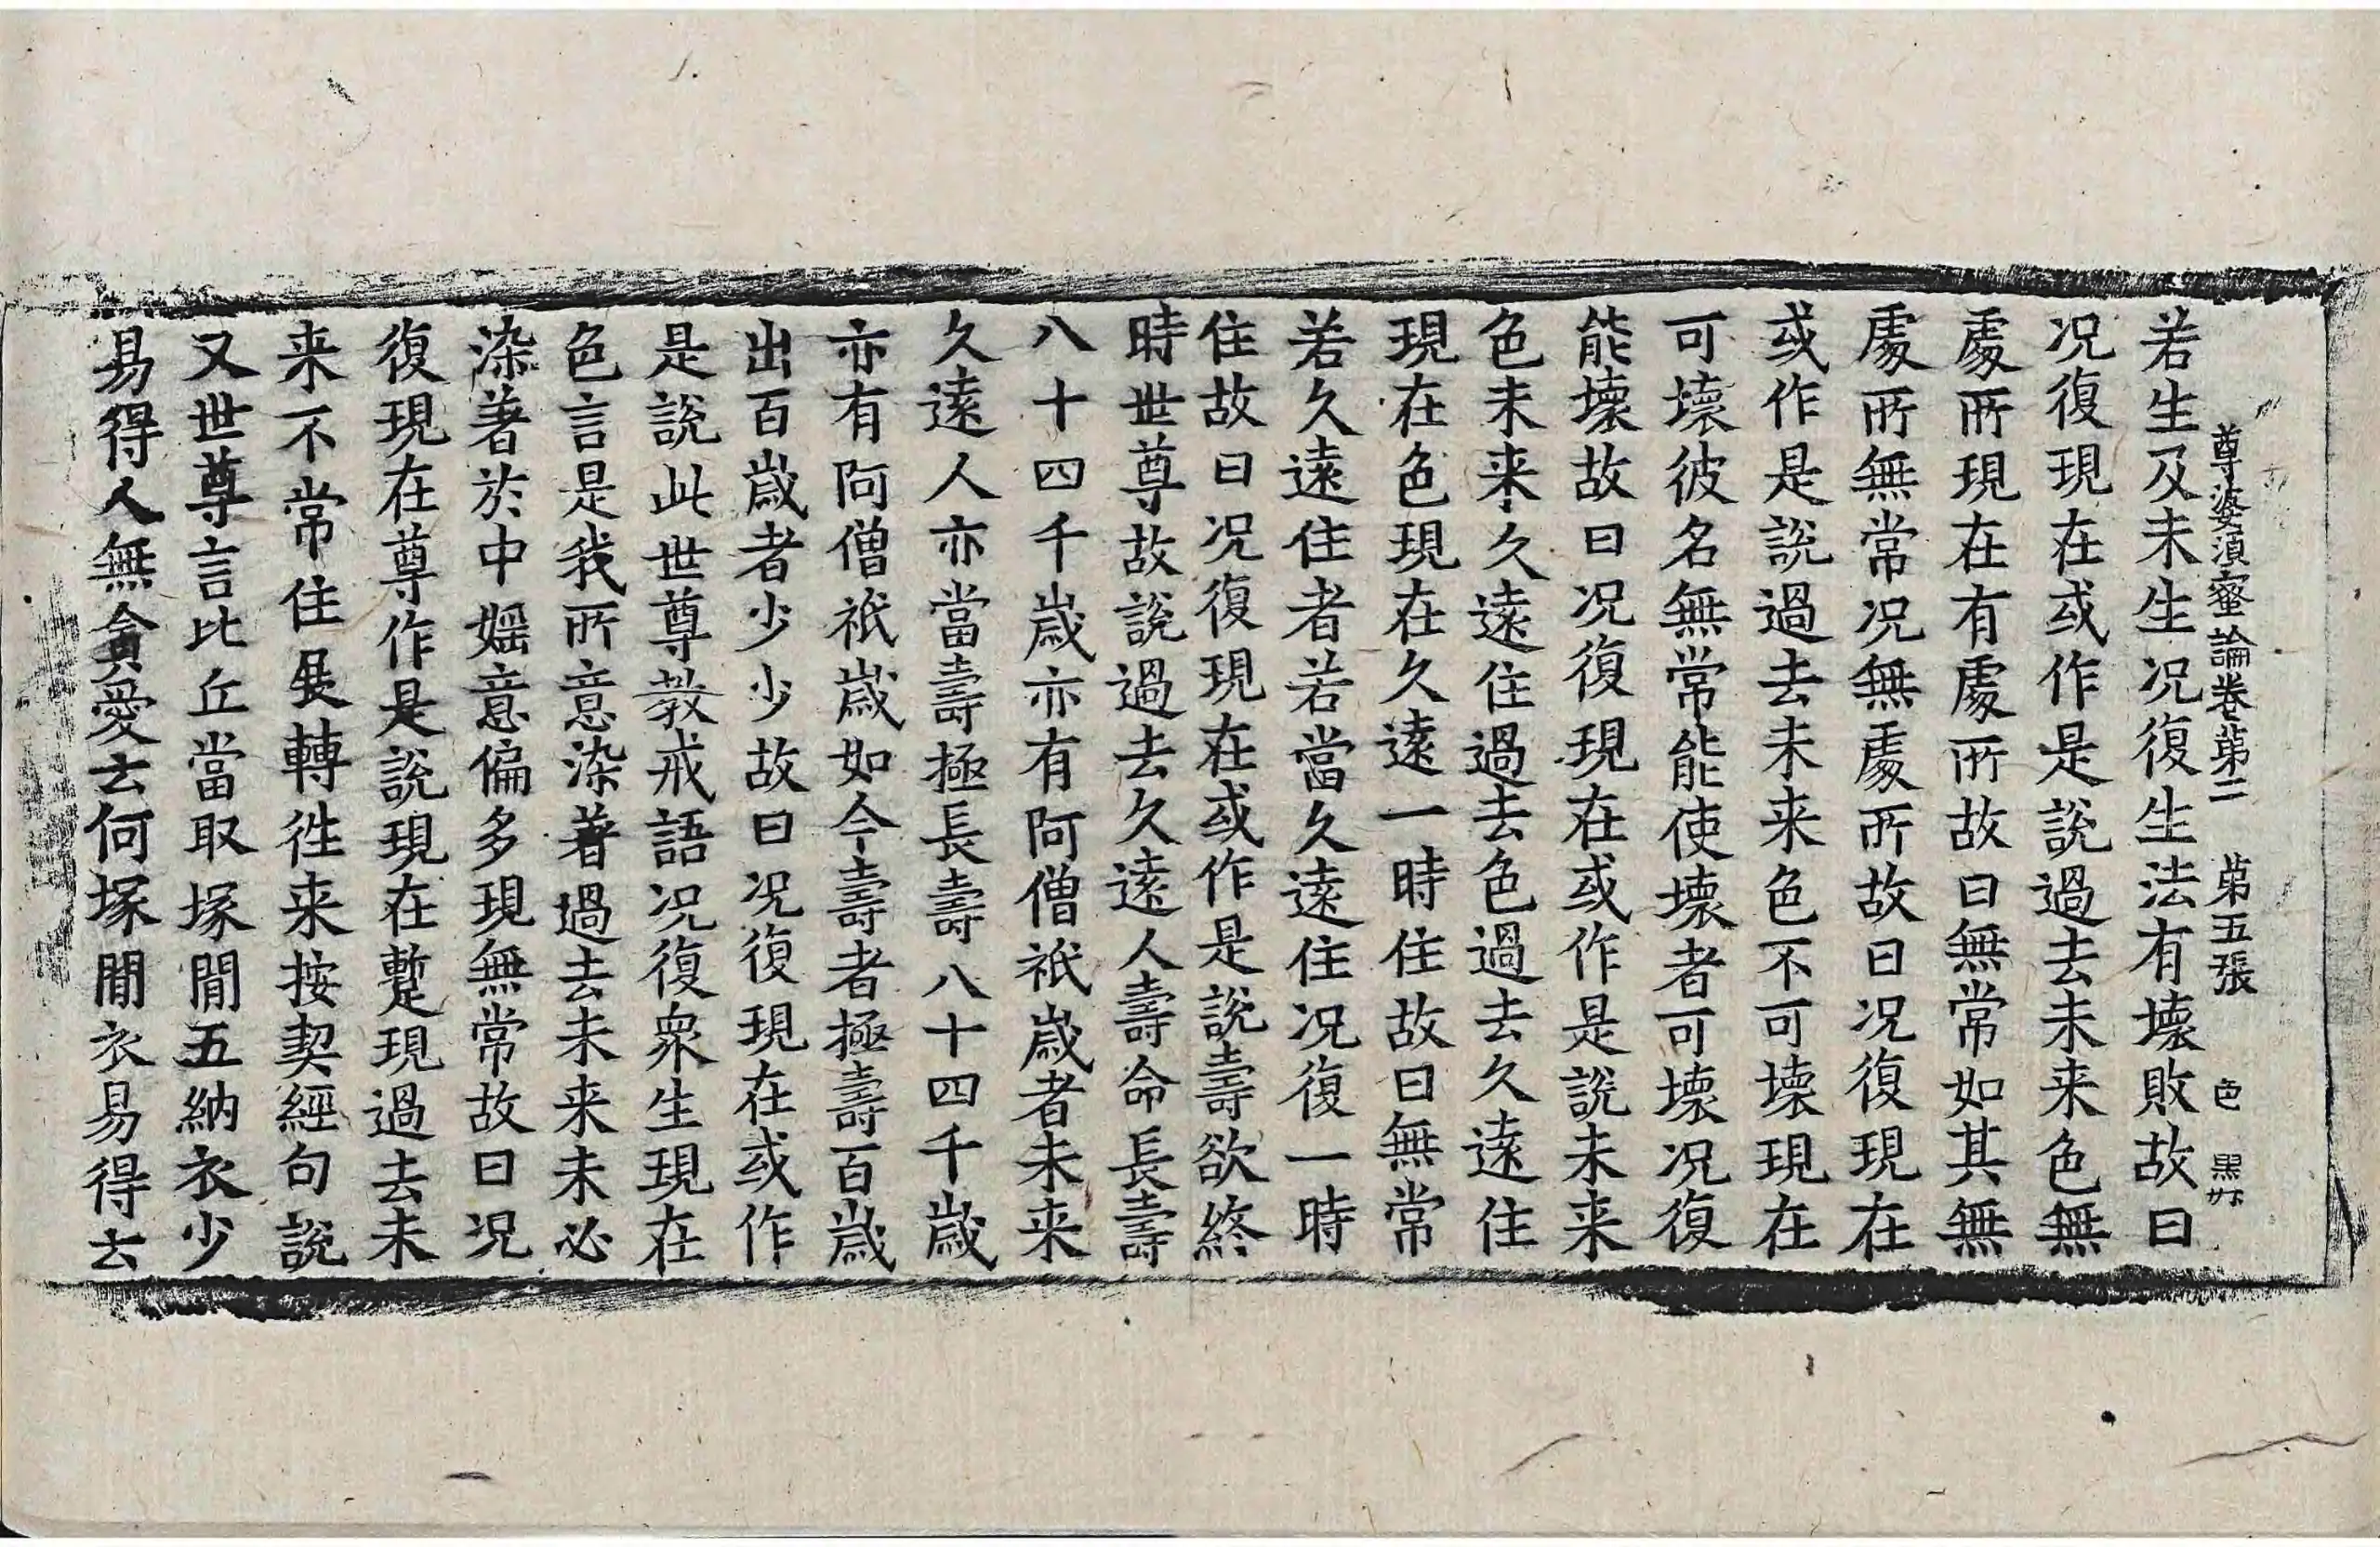 尊婆須蜜論卷第二　第五張　色
若生及未生况復生法有壞敗故曰
况復現在或作是說過去未来色無
處所現在有處所故曰無常如其無
處所無常况無處所故曰况復現在
或作是說過去未来色不可壞現在
可壞彼名無常能使壞者可壞况復
能壞故曰况復現在或作是說未来
色未来久遠住過去色過去久遠住
現在色現在久遠一時住故曰無常
若久遠住者若當久遠住况復一時
住故曰况復現在或作是說壽欲終
時世尊故說過去久遠人壽命長壽
八十四千歲亦有阿僧祇歲者未来
久遠人亦當壽極長壽八十四千歲
亦有阿僧祇歲如今壽者極壽百歲
出百歲者少少故曰况復現在或作
是說此世尊教戒語况復衆生現在
色言是我所意染著過去未来未必
染著於中婬意偏多現無常故曰况
復現在尊作是說現在蹔現過去未
来不常住展轉往来按契經句說
又世尊言比丘當取塚閒五納衣少
易得人無貪愛云何塚閒衣易得云